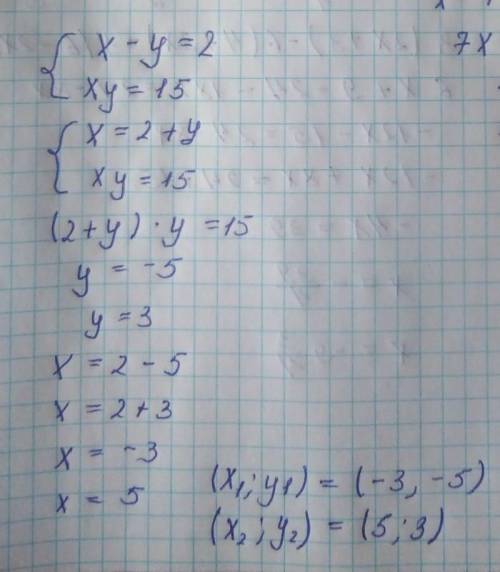 x - y = 2
7x
xy = 15
x = 2 + y
xy = 15
(2+y) · y = 15
y = -5
y = 3
x = 2 - 5
x = 2 + 3
x = -3
x = 5
(x₁; y₁) = (-3, -5)
(x₂; y₂) = (5; 3)